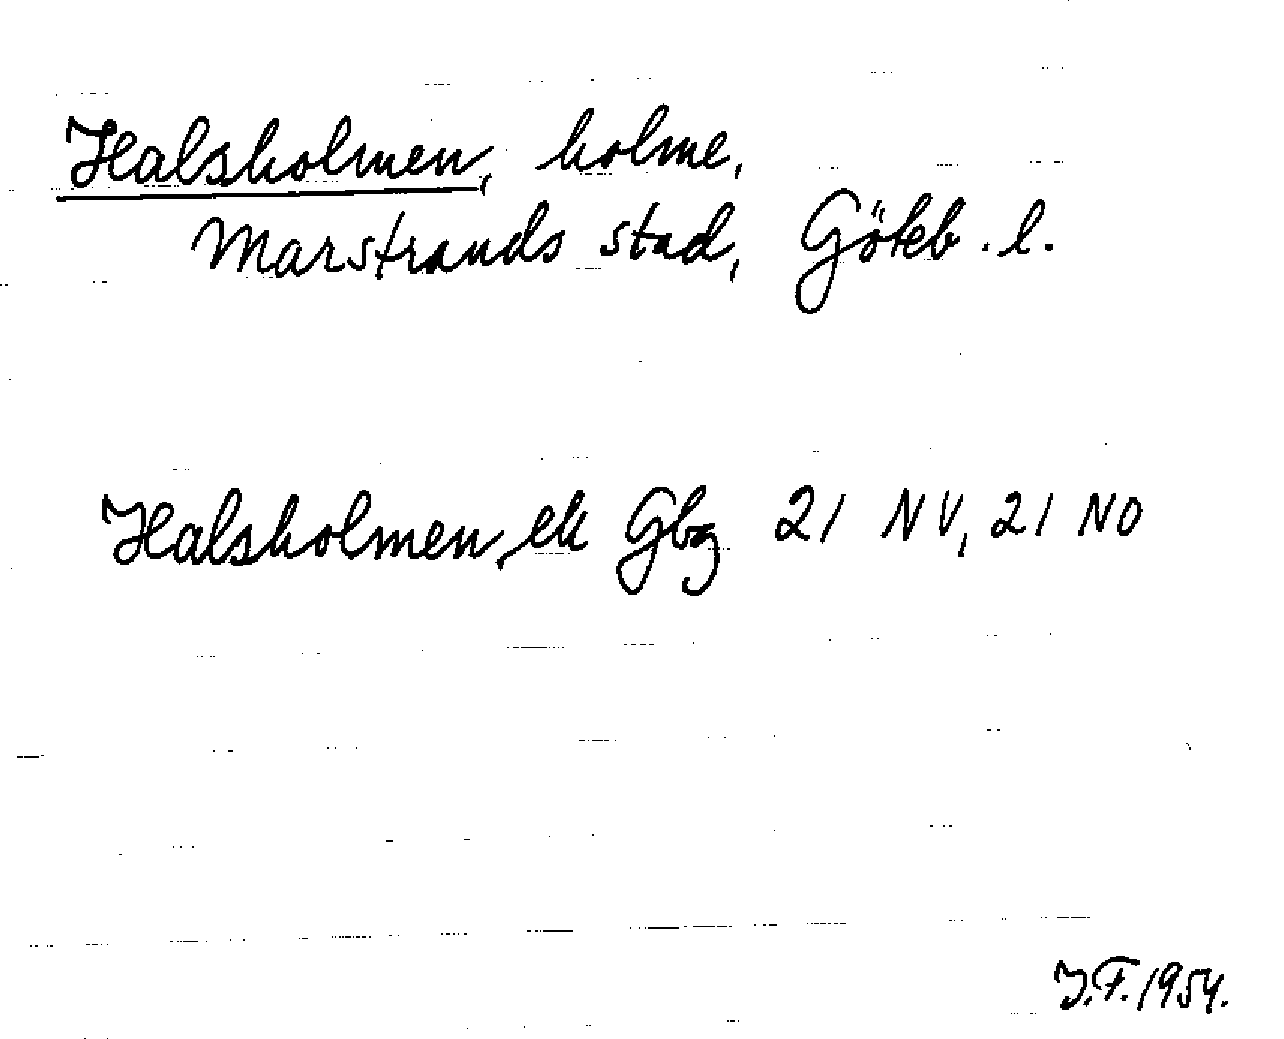 Halsholmen, holme,
Marstrands stad, Göteb. l.
Halsholmen, ek Gbg 21 NV, 21 NO
J.F. 1954.